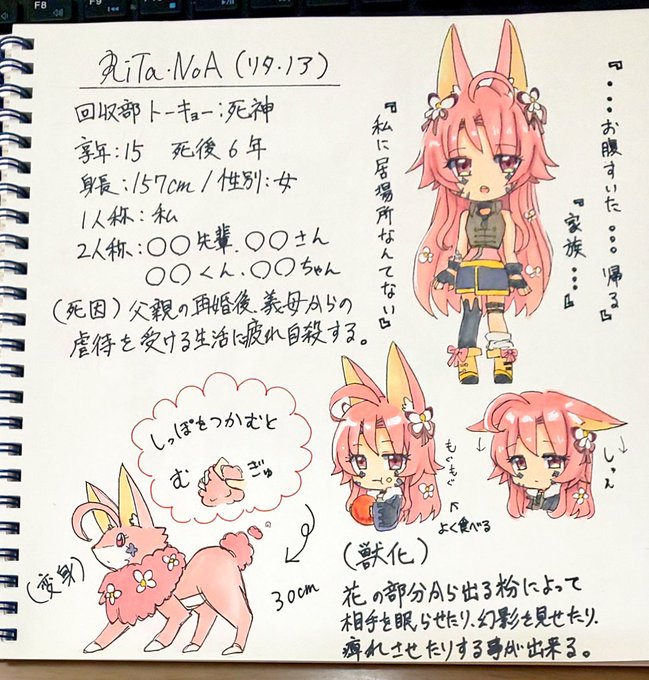 RiTa・NoA (リタ・ノア)
回収部トーキョー:死神
享年:15 死後6年
身長:157cm / 性別:女
1人称:私
2人称:〇〇先輩、〇〇さん
〇〇くん、〇〇ちゃん
(死因) 父親の再婚後、義母からの
虐待を受ける生活に疲れ自殺する。
『・・・お腹すいた・・・帰る』
『家族・・・』
『私に居場所なんてない』
しっぽをつかむと
む ぎゅ
(変身)
30cm
もぐもぐ
よく食べる
しゅん
(獣化)
花の部分から出る粉によって
相手を眠らせたり、幻影を見せたり、
痺れさせたりする事が出来る。
F8
F9